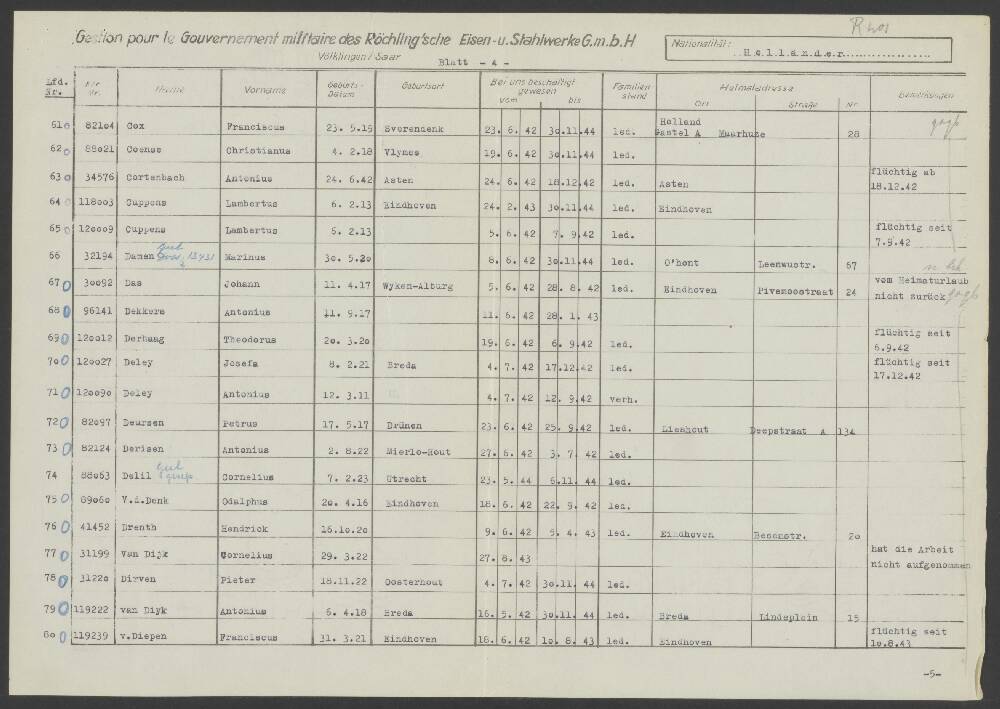 Gestion pour le Gouvernement militaire des Röchling'sche Eisen-u.Stahlwerke G.m.b.H
Völklingen / Saar
Blatt - 4 -
Nationalität: Holländer
Lfd. Nr. Nr. Name Vorname Geburts-Datum Geburtsort Bei uns beschäftigt gewesen vom bis Familien stand Heimatadresse Ort Straße Nr Bemerkungen
61 82104 Cox Franciscus 23. 5.15 Everendenk 23. 6. 42 30.11.44 led. Holland Gastel A Maarhuze 28
62 88021 Coenss Christianus 4. 2.18 Vlymes 19. 6. 42 30.11.44 led.
63 34576 Cortenbach Antonius 24. 6.42 Asten 24. 6. 42 18.12.42 led. Asten flüchtig ab 18.12.42
64 118003 Cuppens Lambertus 6. 2.13 Eindhoven 24. 2. 43 30.11.44 led. Eindhoven
65 120009 Cuppens Lambertus 6. 2.13 5. 6. 42 7. 9.42 led. flüchtig seit 7.9.42
66 32194 Damen Marinus 30. 5.20 8. 6. 42 30.11.44 led. O'hont Leenwustr. 67
67 30092 Das Johann 11. 4.17 Wyken-Alburg 5. 6. 42 28. 8. 42 led. Eindhoven Pivemoostraat 24 vom Heimaturlaub nicht zurück
68 96141 Dekkers Antonius 11. 9.17 11. 6. 42 28. 1. 43
69 120012 Derhaag Theodorus 20. 3.20 19. 6. 42 6. 9.42 led. flüchtig seit 6.9.42
70 120027 Deley Josefa 8. 2.21 Breda 4. 7. 42 17.12.42 led. flüchtig seit 17.12.42
71 120090 Deley Antonius 12. 3.11 4. 7. 42 12. 9.42 verh.
72 82097 Deursen Petrus 17. 5.17 Drünen 23. 6. 42 25. 9.42 led. Lieshout Deopstraat A 134
73 82124 Derisen Antonius 2. 8.22 Mierlo-Hout 27. 6. 42 3. 7. 42 led.
74 88063 Delil Cornelius 7. 2.23 Utrecht 23. 5. 44 6.11. 44 led.
75 89060 V.d.Denk Odalphus 20. 4.16 Eindhoven 18. 6. 42 22. 9. 42 led.
76 41452 Drenth Hendrick 16.10.20 9. 6. 42 5. 4. 43 led. Eindhoven Besemstr. 20
77 31199 van Dijk Cornelius 29. 3.22 27. 8. 43 hat die Arbeit nicht aufgenommen
78 31220 Dirven Pieter 18.11.22 Oosterhout 4. 7. 42 30.11. 44 led.
79 119222 van Diyk Antonius 6. 4.18 Breda 16. 5. 42 30.11. 44 led. Breda Lindsplein 15
80 119239 v.Diepen Franciscus 31. 3.21 Eindhoven 18. 6. 42 10. 8. 43 led. Eindhoven flüchtig seit 10.8.43
-5-